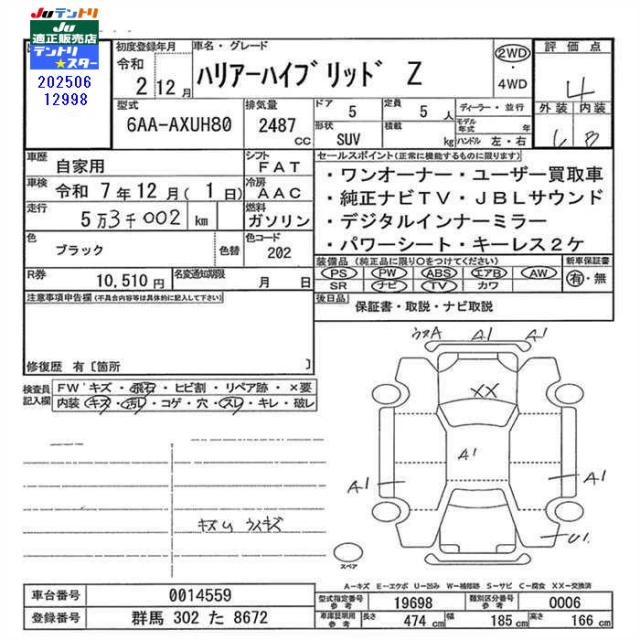 Juテントリ
Ju
適正販売店
テントリ
★スター
202506
12998
初度登録年月
令和
2年12月
車名・グレード
ハリアーハイブリッド Z
2WD
・
4WD
評価点
4
外装 内装
B
型式
6AA-AXUH80
排気量
2487 cc
ドア 5
形状 SUV
定員 5人
積載 kg
ディーラー・並行
モデル年式 年
ハンドル 左・右
車歴 自家用
シフト FAT
車検 令和 7年12月(1日)
冷房 AAC
走行 5万3千002 km
燃料 ガソリン
色 ブラック
色替
色コード 202
R券 10,510円
名変通知期限 月 日
セールスポイント(正常に機能するものに限ります)
・ワンオーナー・ユーザー買取車
・純正ナビTV・JBLサウンド
・デジタルインナーミラー
・パワーシート・キーレス2ケ
装備品(純正品に限り○をつけてください)
PS PW ABS エアB AW
SR ナビ TV カワ
新車保証書
有・無
後日品 保証書・取説・ナビ取説
注意事項申告欄(不具合内容等は具体的に記入して下さい)
修復歴 有〔箇所 〕
検査員記入欄
FWキズ・飛石・ヒビ割・リペア跡・×要
内装 キズ・汚レ・コゲ・穴・スレ・キレ・破レ
A1
A1
XX
A1
A1
A1
スペア
A-キズ E-エクボ U-凹み W-補修跡 S-サビ C-腐食 XX-交換済
車台番号 0014559
登録番号 群馬 302 た 8672
型式指定番号 参考 19698
類別区分番号 参考 0006
車庫証明用 参考 長さ 474 cm 幅 185 cm 高さ 166 cm